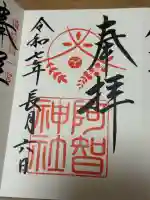 奉拝
阿智
神社
令和七年長月六日